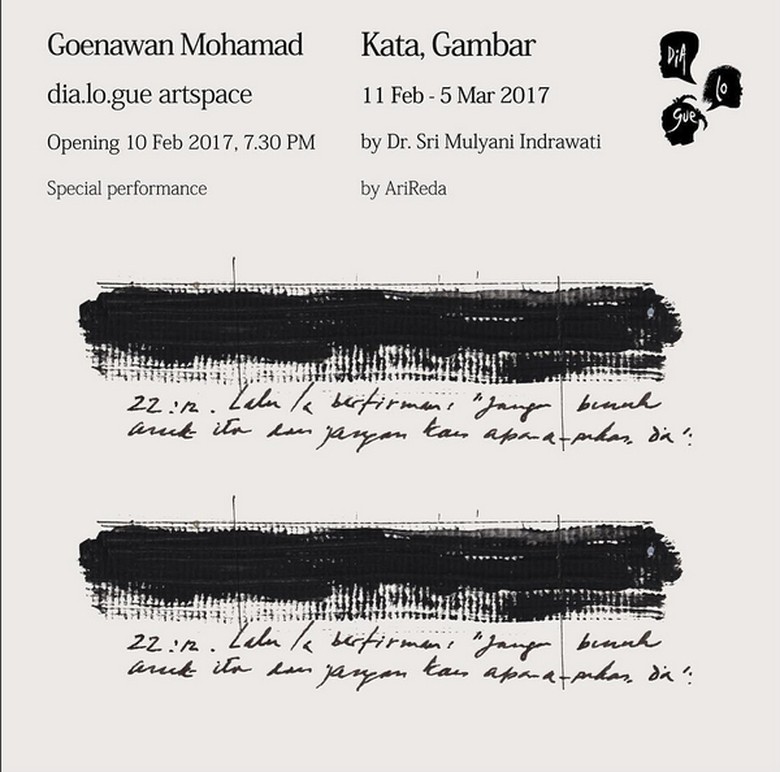 Goenawan Mohamad
Kata, Gambar
dia.lo.gue artspace
11 Feb - 5 Mar 2017
Opening 10 Feb 2017, 7.30 PM
by Dr. Sri Mulyani Indrawati
Special performance
by AriReda
DiA
lo
gue
22:12. Lalu Ia berfirman: "Jangan bunuh
anak itu dan jangan kau apa-a-pakan dia":
22:12. Lalu Ia berfirman: "Jangan bunuh
anak itu dan jangan kau apa-a-pakan dia":